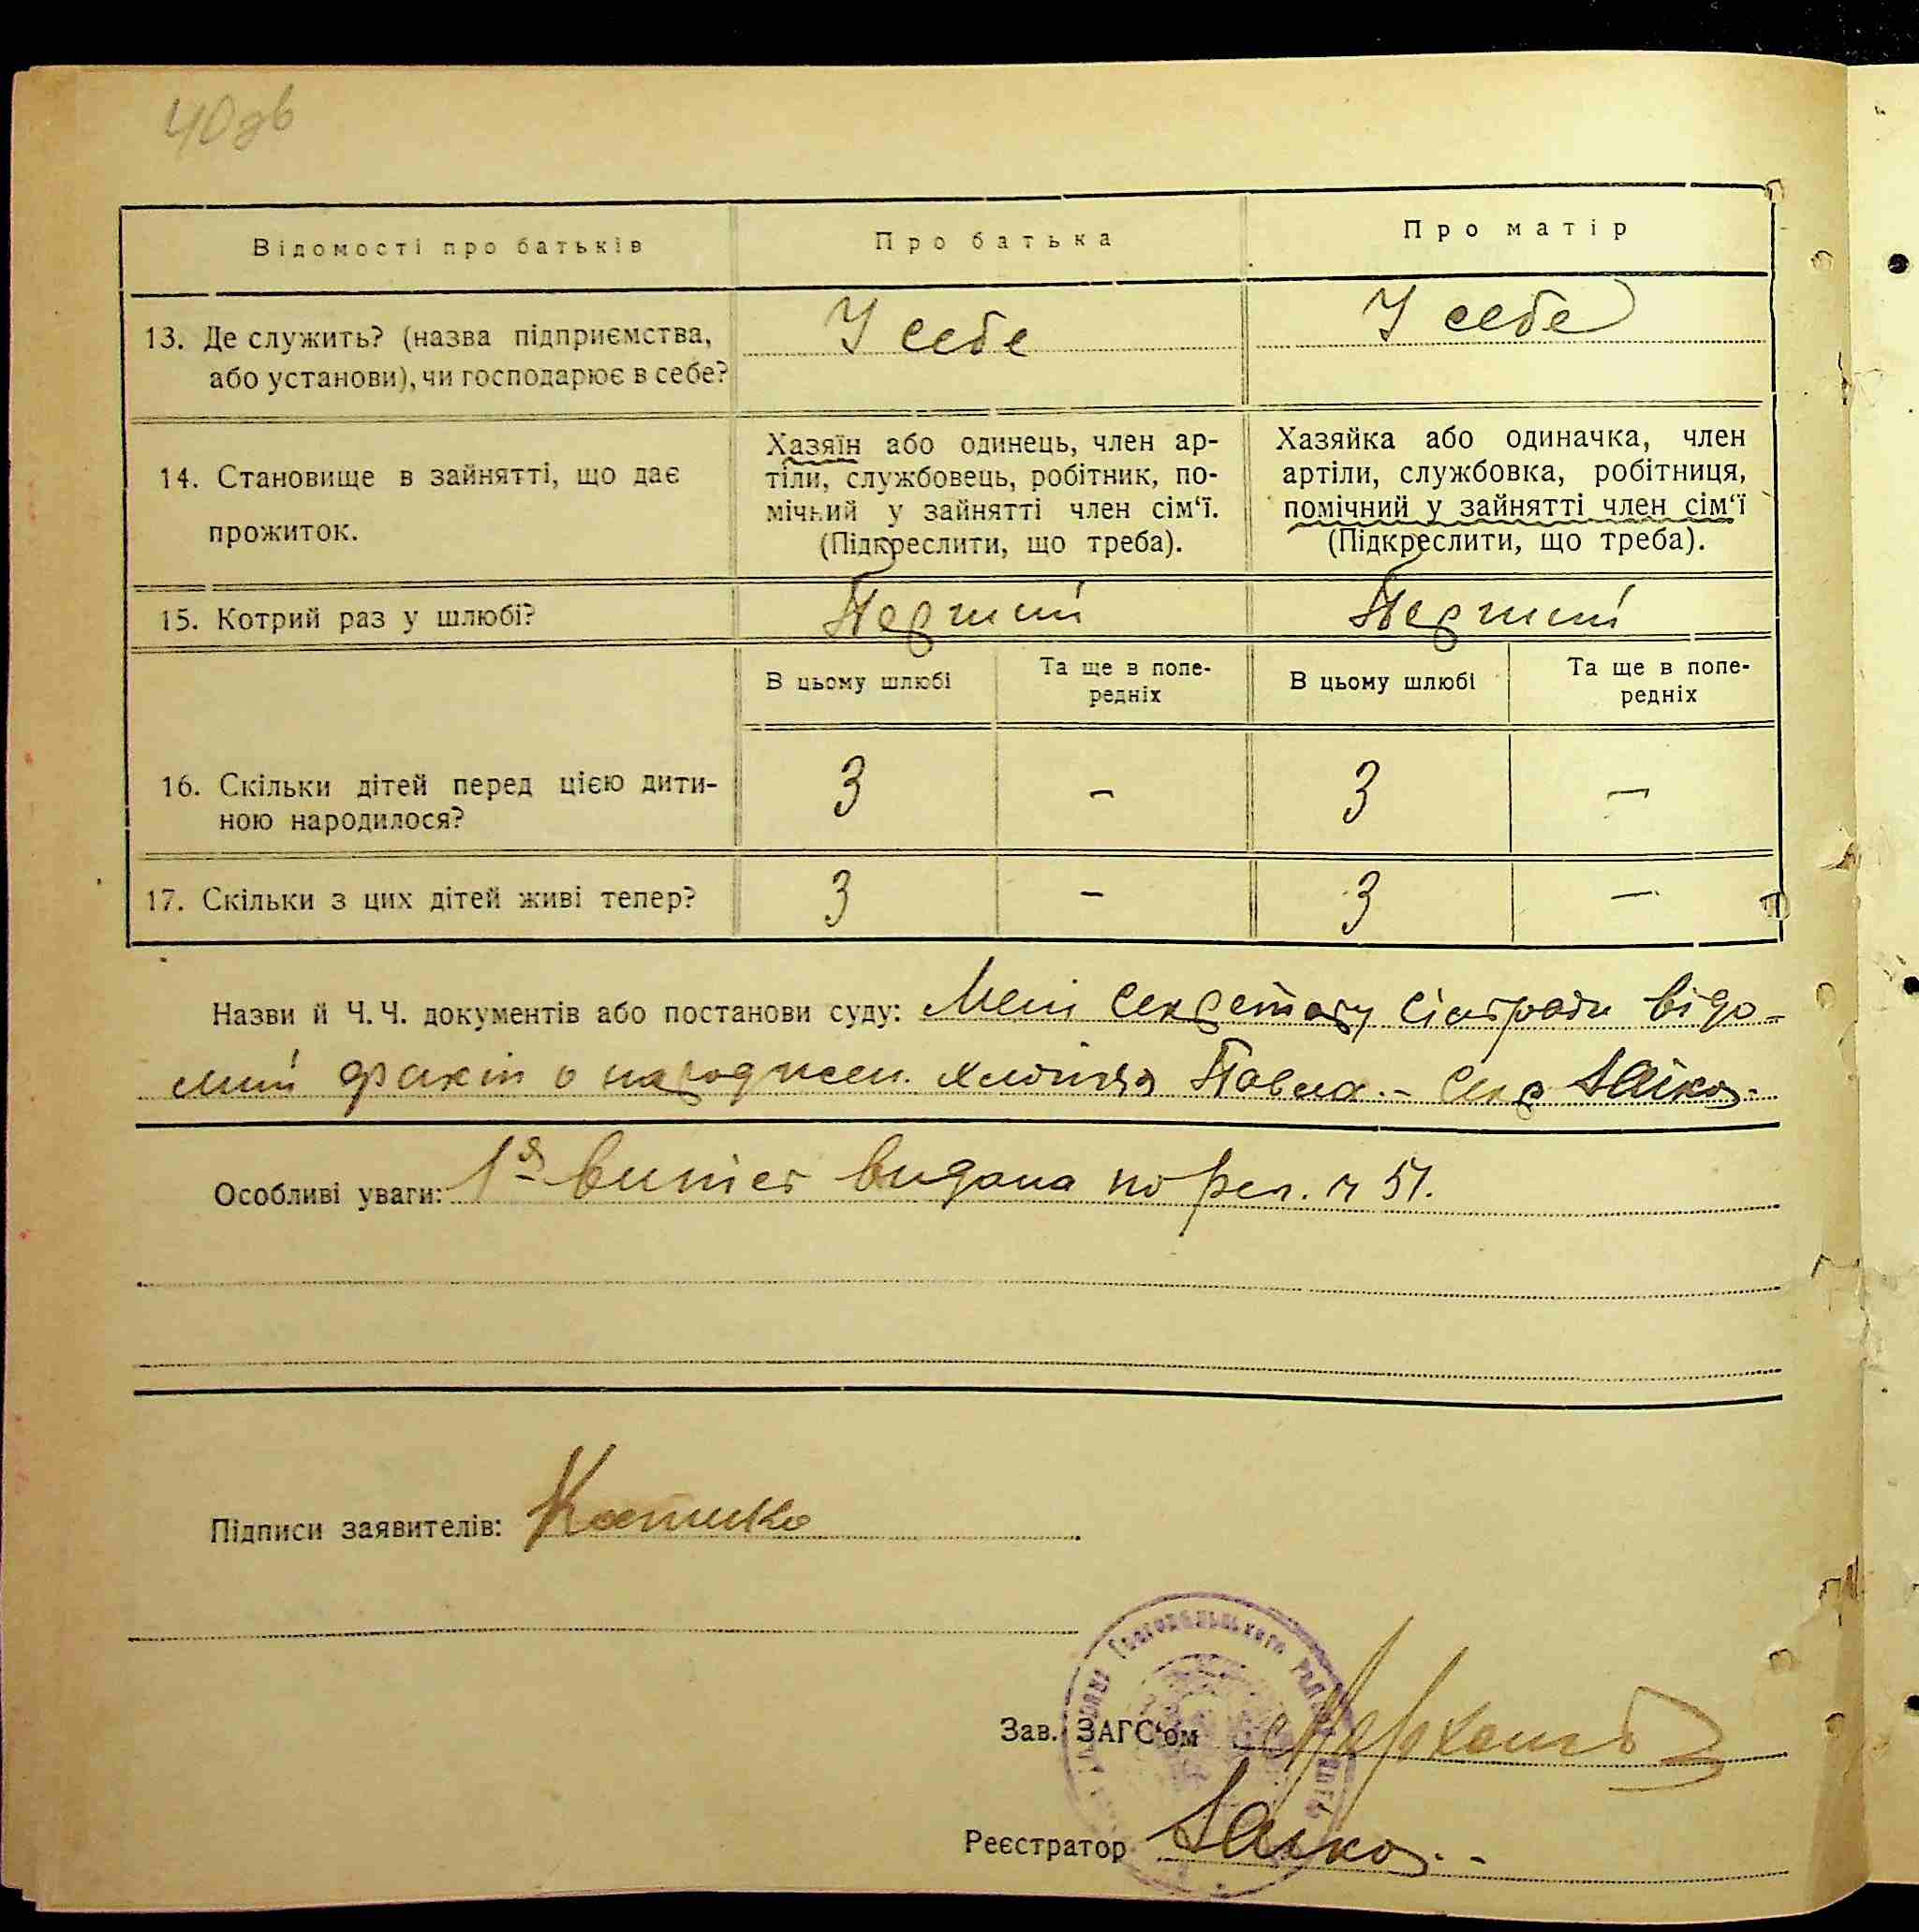 40зв
Відомості про батьків
Про батька
Про матір
13. Де служить? (назва підприємства,
або установи), чи господарює в себе?
У себе
У себе
14. Становище в зайнятті, що дає
прожиток.
Хазяїн або одинець, член ар-
тіли, службовець, робітник, по-
мічний у зайнятті член сім'ї.
(Підкреслити, що треба).
Хазяйка або одиначка, член
артіли, службовка, робітниця,
помічний у зайнятті член сім'ї
(Підкреслити, що треба).
15. Котрий раз у шлюбі?
Перший
Перший
В цьому шлюбі
Та ще в попе-
редніх
В цьому шлюбі
Та ще в попе-
редніх
16. Скільки дітей перед цією дити-
ною народилося?
3
-
3
-
17. Скільки з цих дітей живі тепер?
3
-
3
-
Назви й Ч.Ч. документів або постанови суду: Мені секретару сільради відо-
мий факт о народжен. хлопця Павла. - Секр
Особливі уваги: 1а видана по № 51.
Підписи заявителів:
Зав. ЗАГС'ом
Реєстратор